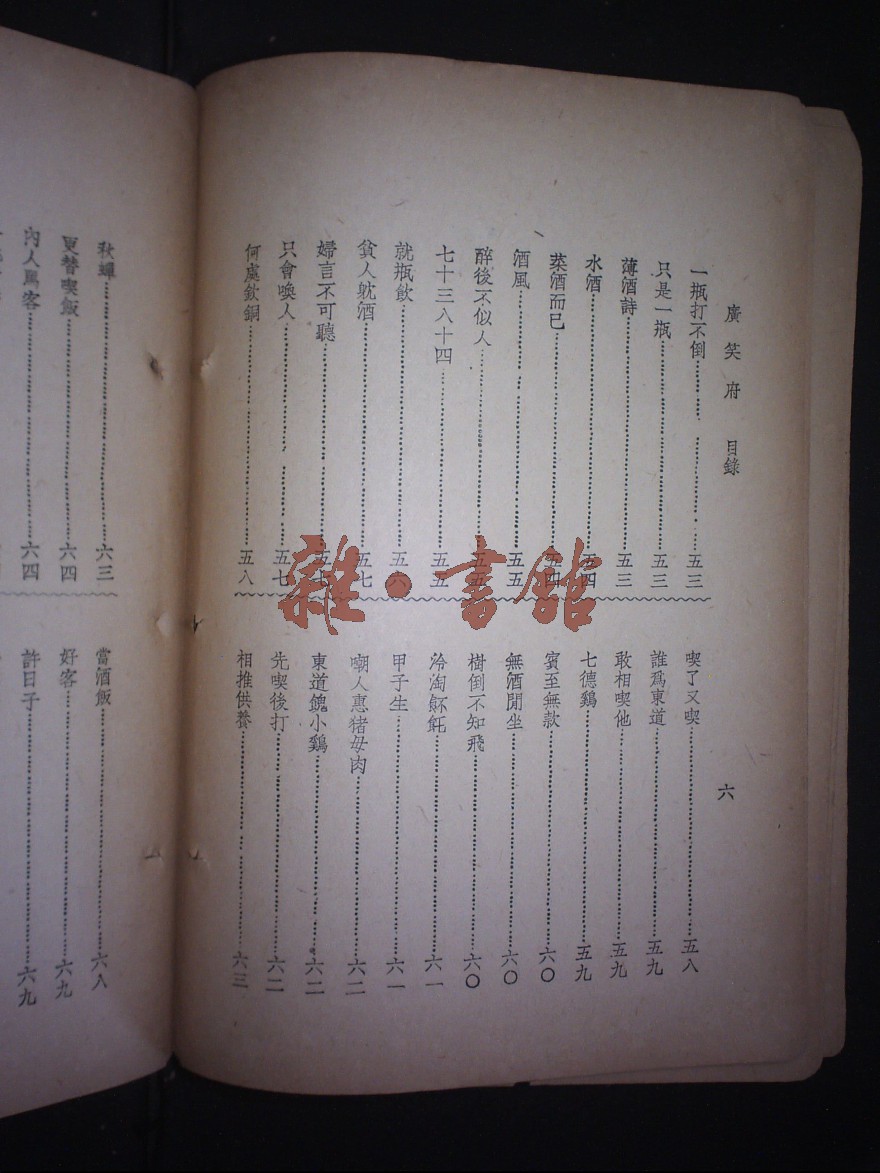 廣笑府 目錄
六
一瓶打不倒 五三
只是一瓶 五三
薄酒詩 五三
水酒 五四
菜酒而已 五四
酒風 五五
醉後不似人 五五
七十三八十四 五五
就瓶飲 五六
貧人躭酒 五七
婦言不可聽 五七
只會喚人 五七
何處欽銅 五八
喫了又喫 五八
誰爲東道 五九
敢相喫他 五九
七德鷄 五九
賓至無款 六〇
無酒閒坐 六〇
樹倒不知飛 六〇
冷淘 六一
甲子生 六一
嘲人惠猪母肉 六二
東道餽小鷄 六二
先喫後打 六二
相推供養 六三
秋蟬 六三
更替喫飯 六四
內人罵客 六四
當酒飯 六八
好客 六九
許日子 六九
雜·書館